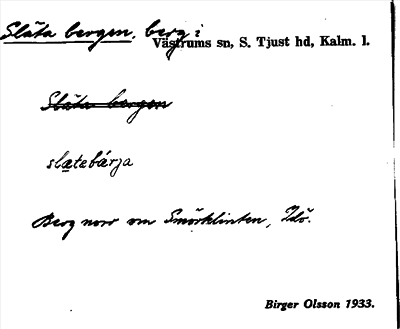 Släta bergen, berg i
Västrums sn, S. Tjust hd, Kalm. l.
Släta bergen
slætebárja
Berg norr om Smörklinten, Idö.
Birger Olsson 1933.